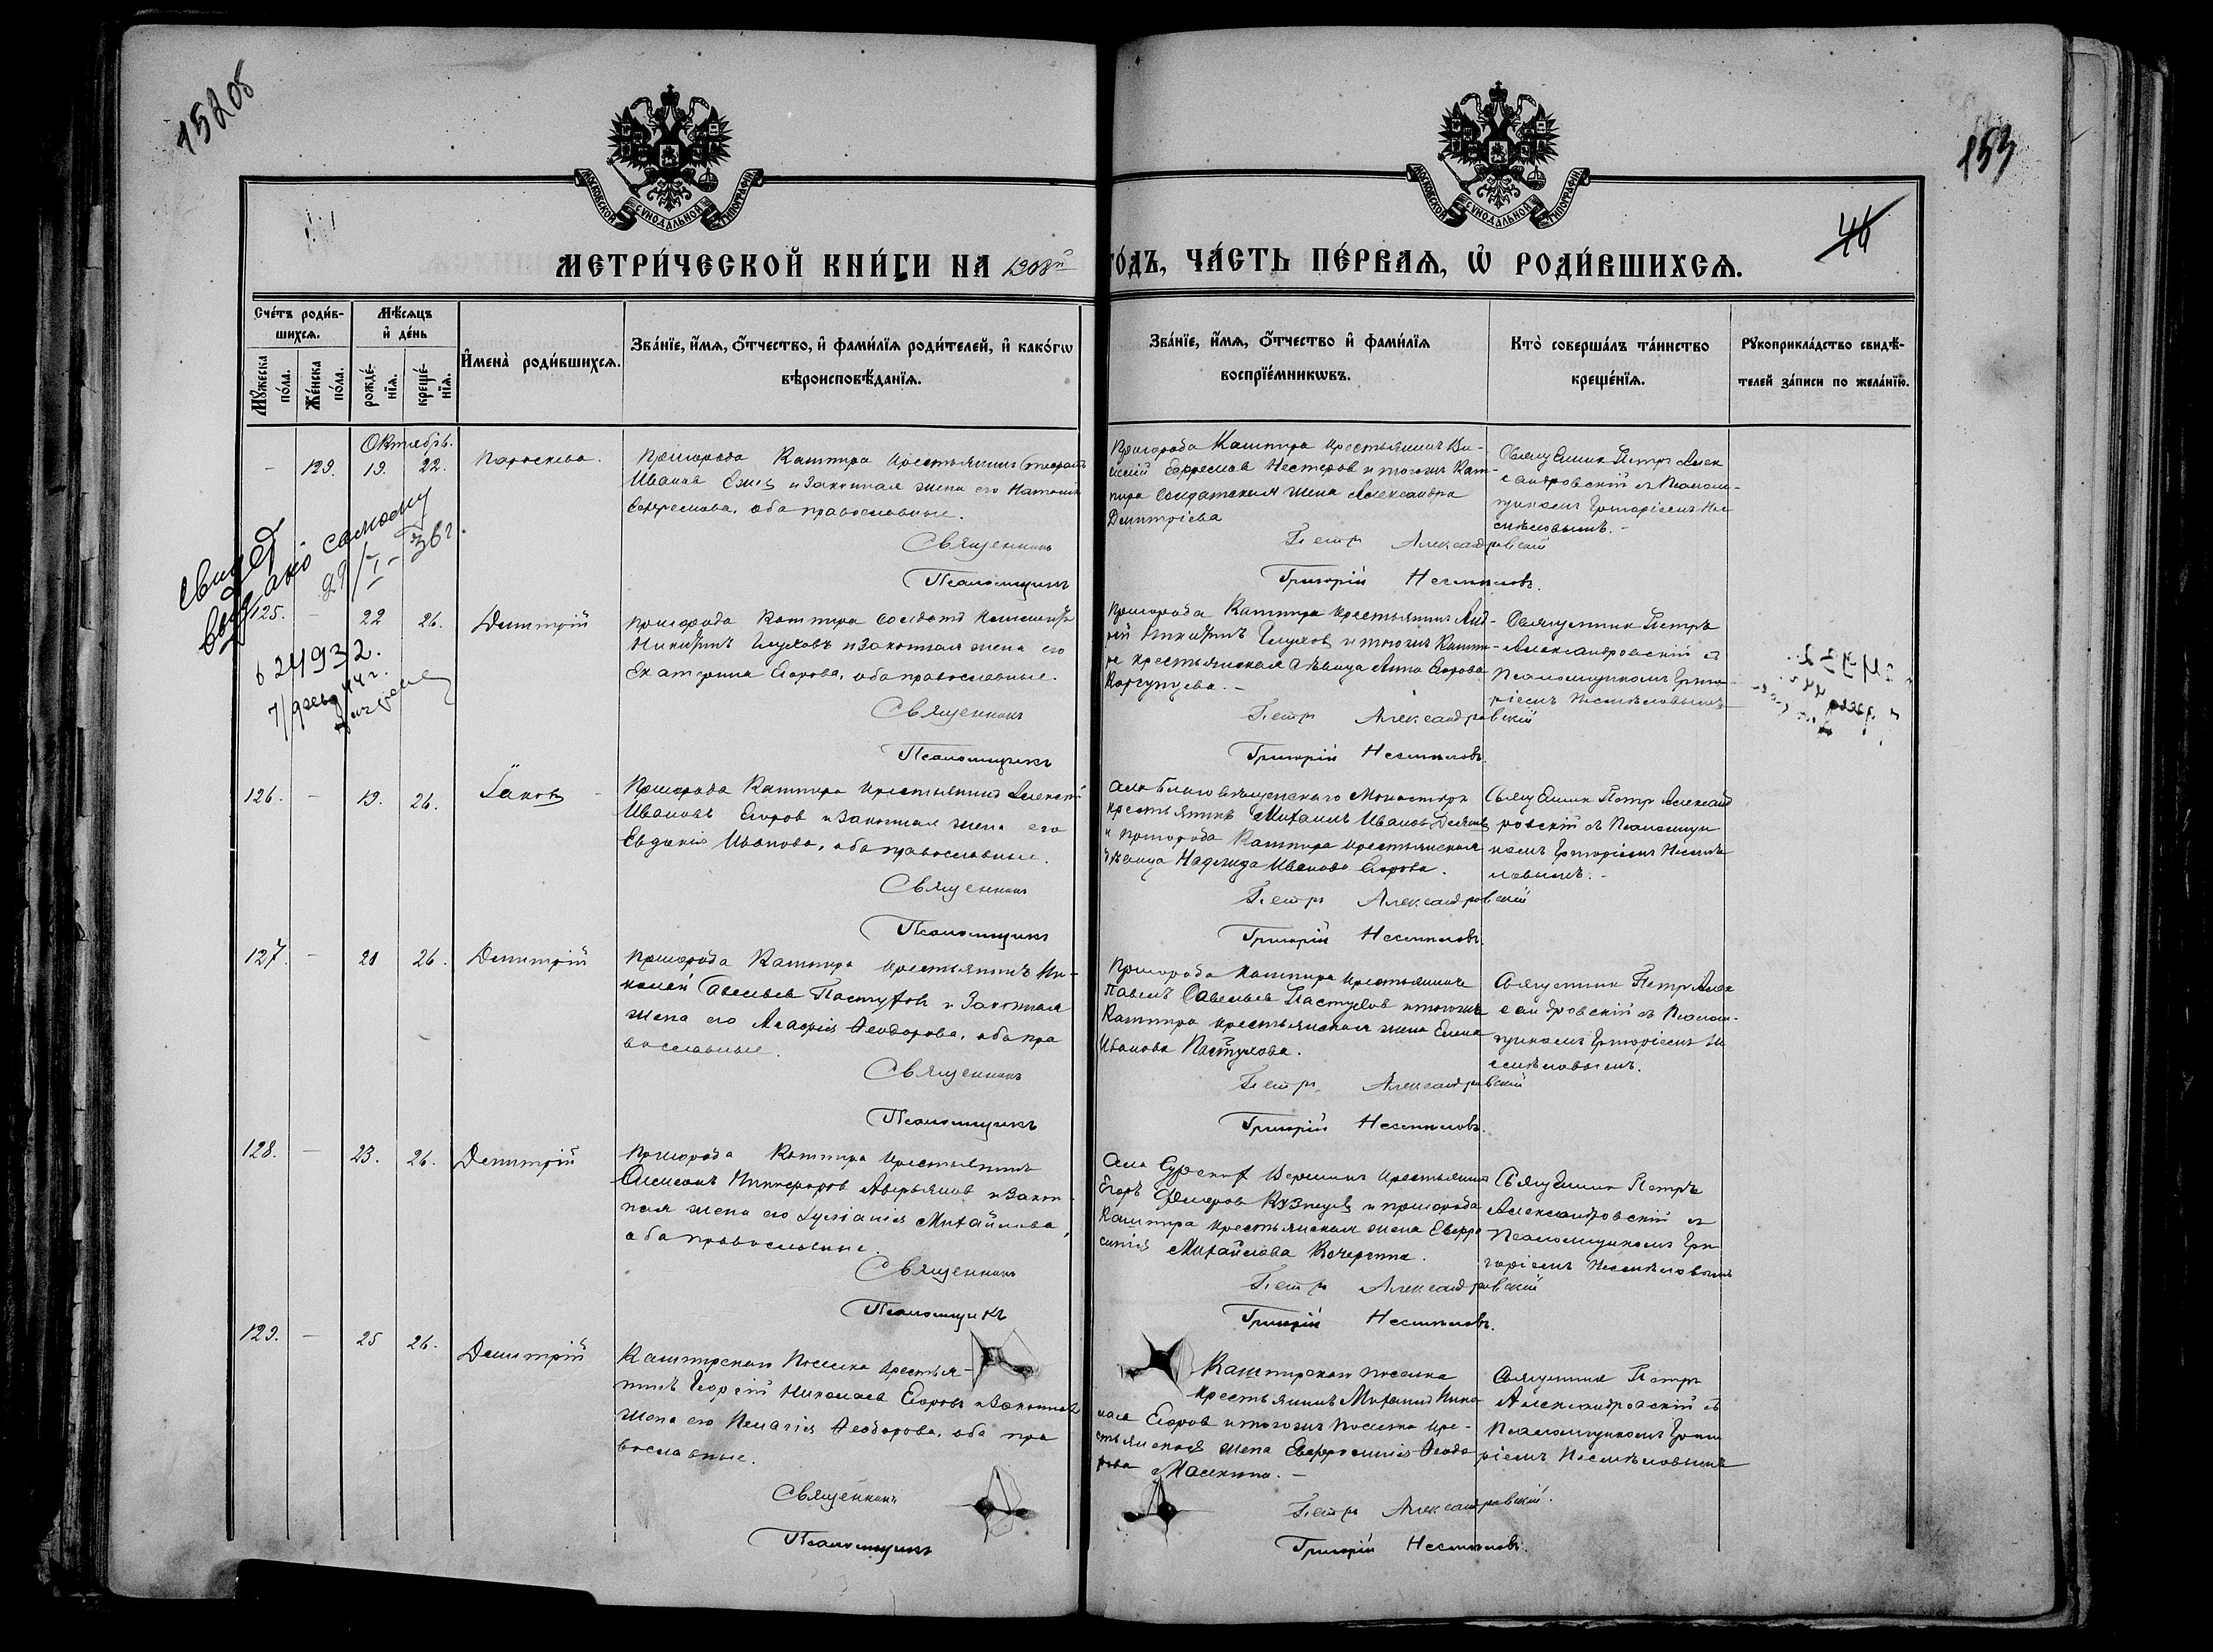 15208
153
46
МОСКОВСКОЙ СУНОДАЛЬНОЙ ТИПОГРАФІИ
МОСКОВСКОЙ СУНОДАЛЬНОЙ ТИПОГРАФІИ
МЕТРИ́ЧЕСКОЙ КНИ́ГИ НА 1908й
ГО́ДЪ, ЧА́СТЬ ПЕ́РВАѦ, Ѡ҆ РОДИ́ВШИХСѦ.
Сче́тъ роди́в-
шихсѧ.
Мꙋ́жеска по́ла.
Же́нска по́ла.
Мѣ́сѧцъ
и҆ де́нь
рожде́-нїѧ.
креще́-нїѧ.
И҆мена̀ роди́вшихсѧ.
Зва́нїе, и҆́мѧ, ѻ҆́тчество, и҆ фами́лїѧ роди́телей, и҆ како́гѡ
вѣроисповѣ́данїѧ.
Зва́нїе, и҆́мѧ, ѻ҆́тчество и҆ фами́лїѧ
воспрїе́мникѡвъ.
Кто̀ соверша́лъ та́инство
креще́нїѧ.
Рꙋкоприкла́дство свидѣ́-
телей за́писи по жела́нїю.
Октябрь.
129. 19. 22. Параскева.
Пригорода Кашпира крестьянинъ
Иванов и законная жена его
Евфремова, оба православные.
Священникъ
Псаломщикъ
Пригорода Кашпира крестьянинъ
Евфремов Нестеров и тогожъ Каш-
пира солдатская жена Александра
Димитріева
Петръ Александровскій
Григорій Несмѣловъ.
Священник Петръ Алек
сандровскій съ Псалом-
щикомъ Григоріемъ Не
смѣловымъ.
свидет.
выдано самому
29/I - 36 г.
125. — 22 26. Димитрій
Пригорода Кашпира солдатъ
Никитинъ Глуховъ и законная жена его
Екатерина Егорова, оба православные.
Священникъ
Псаломщикъ
Пригорода Кашпира крестьянинъ Анд-
рій Никитинъ Глухов и тогожъ Кашпи-
ра крестьянская дѣвица Анна Егорова
Петръ Александровскій
Григорій Несмѣловъ
Священник Петръ
Александровскій съ
Псаломщикомъ Григо-
ріемъ Несмѣловымъ
24932.
7/февр 44 г.
126. — 19. 26. Іаковъ
Пригорода Кашпира крестьянинъ Алексѣй
Ивановъ Егоров и законная жена его
Евдокія Иванова, оба православные.
Священникъ
Псаломщикъ
Села Благовѣщенского Монастыря
крестьянинъ Михаилъ Иванов
и пригорода Кашпира крестьянская
дѣвица Надежда Иванова Егорова.
Петръ Александровскій
Григорій Несмѣловъ.
Священник Петр Александ
ровскій съ Псаломщи
комъ Григоріемъ Несмѣ
ловымъ.
127. — 21 26. Димитрій
Пригорода Кашпира крестьянинъ Ни-
колай Савельев Пастухов и законная
жена его Агафія Ѳеодорова, оба пра
вославные.
Священникъ
Псаломщикъ
Пригорода Кашпира крестьянинъ
Павелъ Савельев Пастухов и тогожъ
Кашпира крестьянская жена Елена
Иванова Пастухова.
Петръ Александровскій
Григорій Несмѣловъ.
Священник Петр Алек
сандровскій съ Псалом-
щикомъ Григоріемъ Не
смѣловымъ.
128. — 23. 26. Димитрій
Пригорода Кашпира крестьянинъ
Симеонъ Никифоров Аверьянов и закон-
ная жена его Іуліанія Михайлова,
оба православные.
Священникъ
Псаломщикъ
Села Вершинъ крестьянинъ
Егоръ Кузнецов и пригорода
Кашпира крестьянская жена Евфро
синія Михайлова
Петръ Александровскій
Григорій Несмѣловъ.
Священник Петръ
Александровскій съ
Псаломщикомъ Гри
горіемъ Несмѣловымъ
129. — 25 26. Димитрій
Кашпирского Поселка крестья-
нинъ Георгій Николаев Егоровъ и законная
жена его Пелагія Ѳеодорова, оба пра
вославные.
Священникъ
Псаломщикъ
Кашпирского поселка
крестьянинъ Михаилъ Нико
лаев Егоров и тогожъ Поселка кре-
стьянская жена Евфросинія Ѳеодо
рова
Петръ Александровскій.
Григорій Несмѣловъ.
Священник Петръ
Александровскій съ
Псаломщикомъ Григо
ріемъ Несмѣловымъ